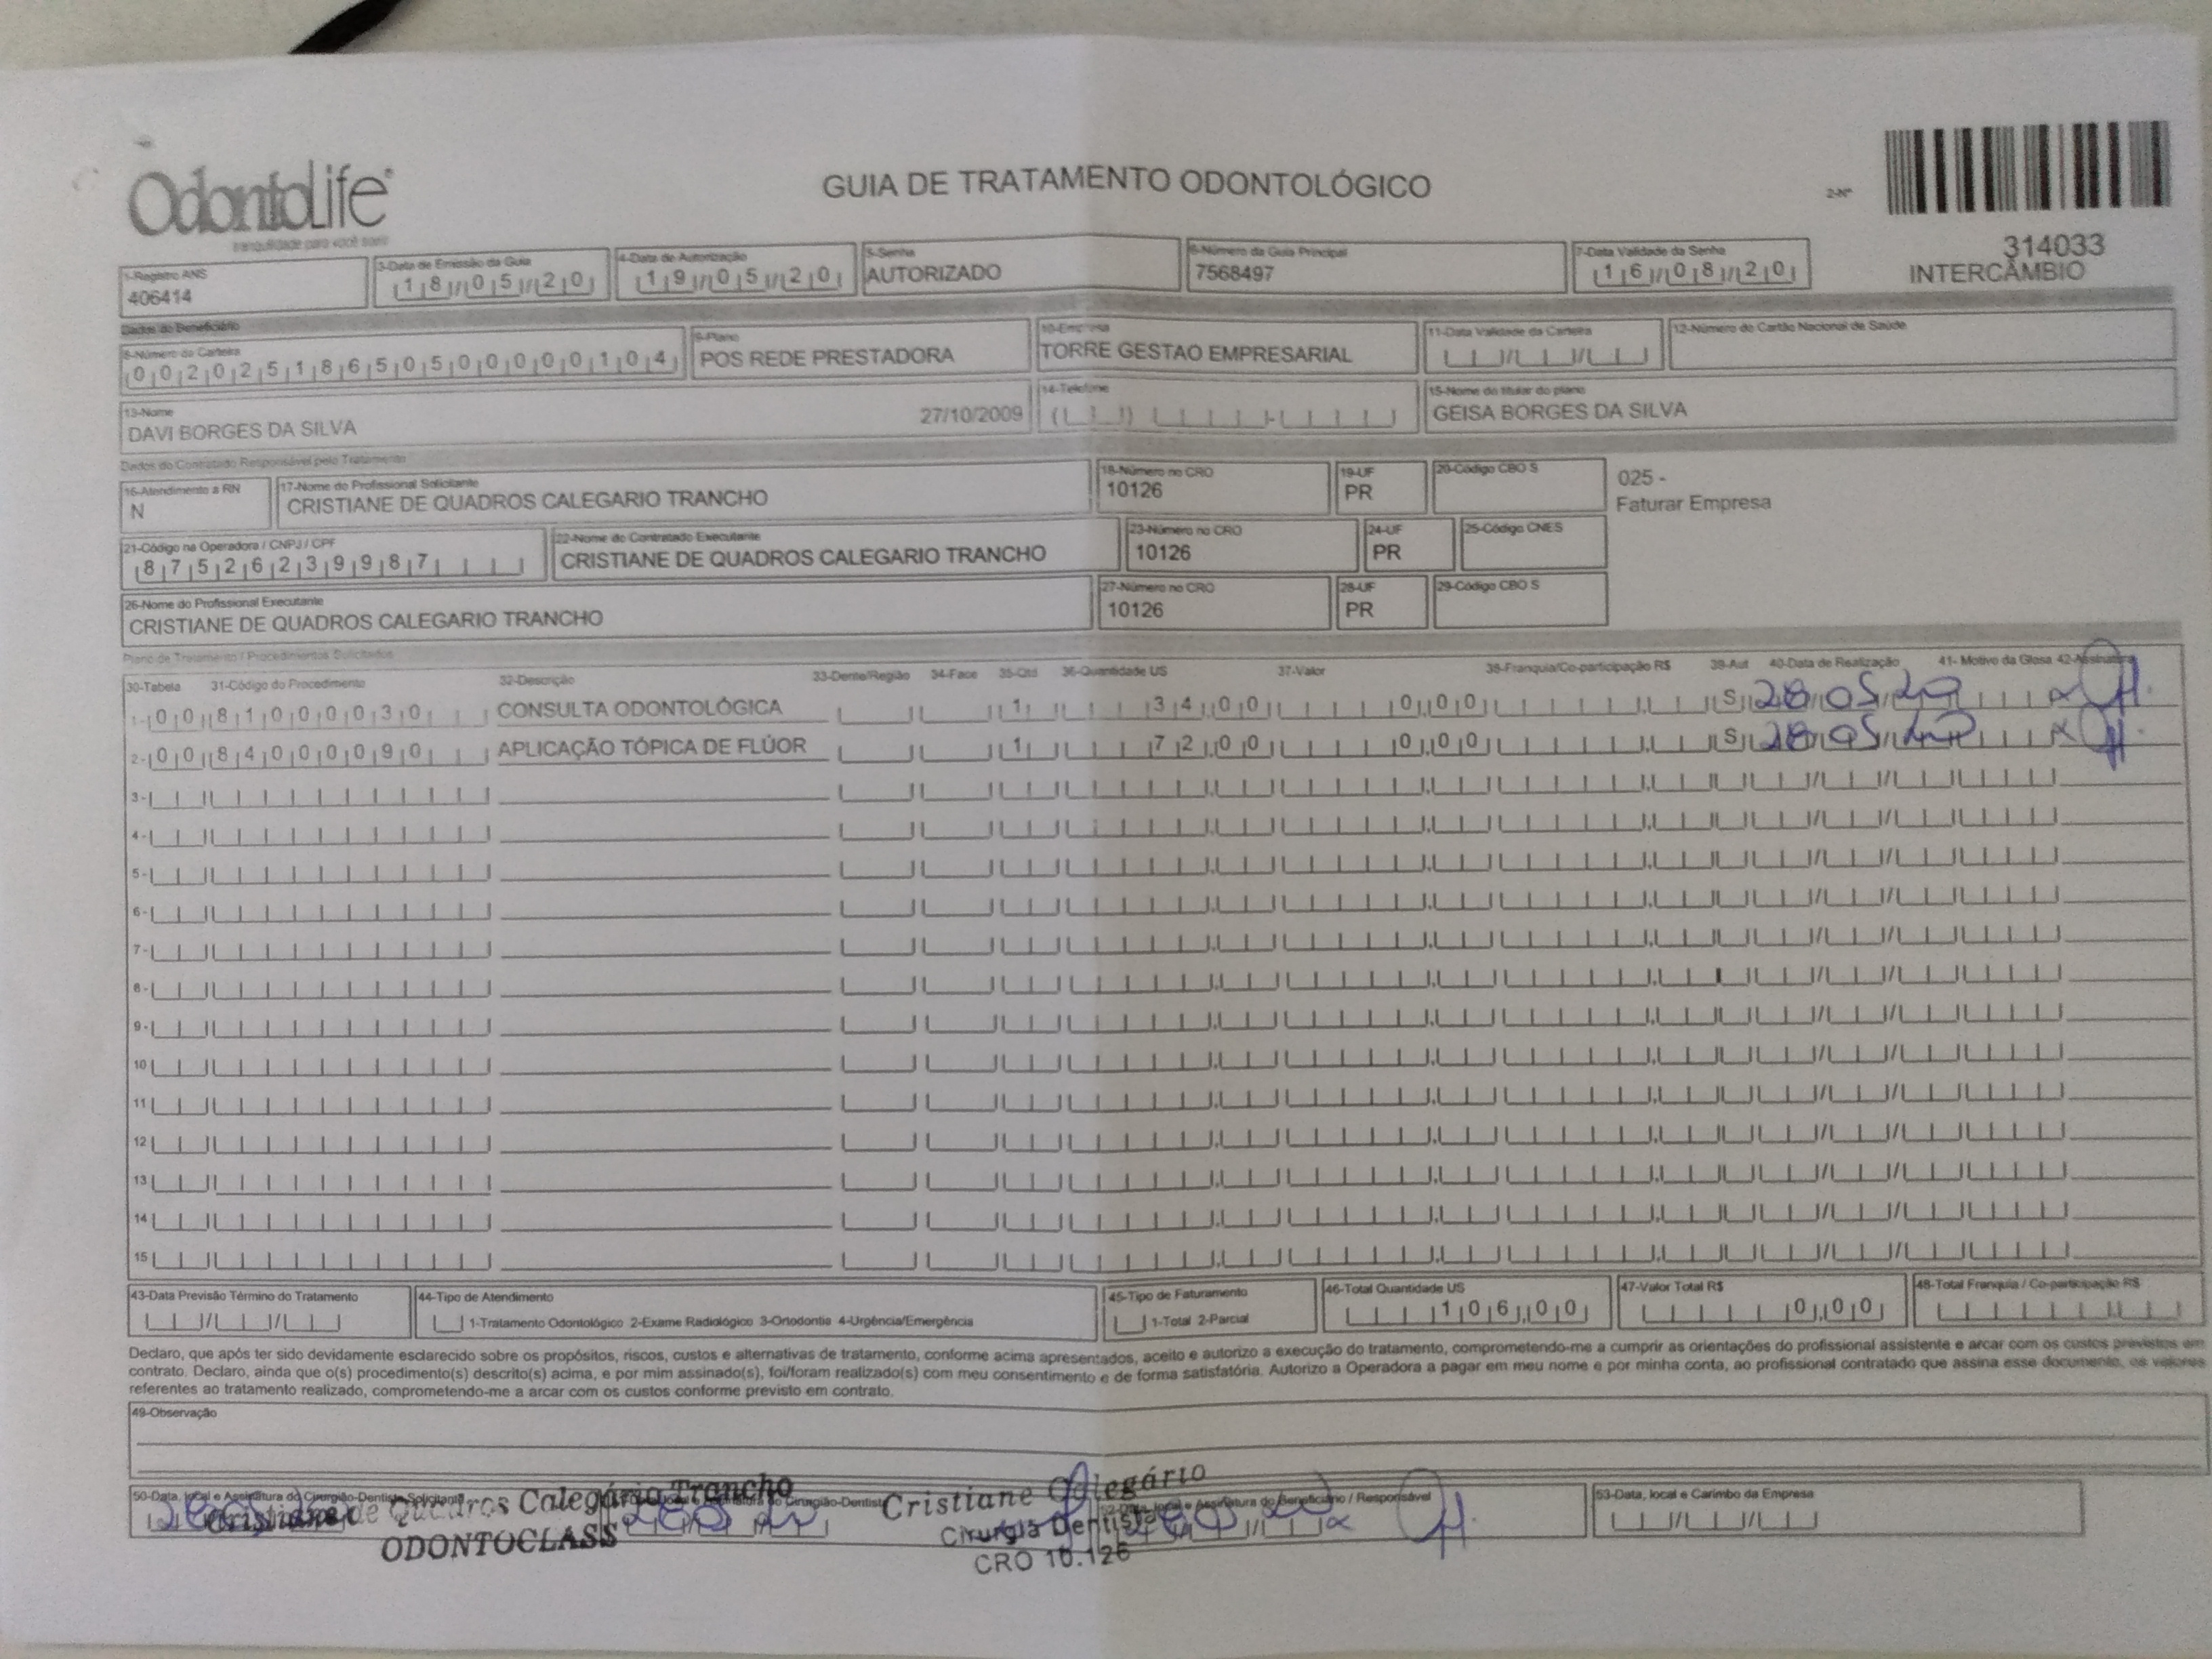 OdontoLife
tranquilidade para você sorrir
GUIA DE TRATAMENTO ODONTOLÓGICO
2-Nº
314033
INTERCÂMBIO
1-Registro ANS
406414
3-Data de Emissão da Guia
18/05/20
4-Data de Autorização
19/05/20
5-Senha
AUTORIZADO
6-Número da Guia Principal
7568497
7-Data Validade da Senha
16/08/20
Dados do Beneficiário
8-Número da Carteira
00202518650500000104
9-Plano
POS REDE PRESTADORA
10-Empresa
TORRE GESTAO EMPRESARIAL
11-Data Validade da Carteira
12-Número do Cartão Nacional de Saúde
13-Nome
DAVI BORGES DA SILVA 27/10/2009
14-Telefone
15-Nome do titular do plano
GEISA BORGES DA SILVA
Dados do Contratado Responsável pelo Tratamento
16-Atendimento a RN
N
17-Nome do Profissional Solicitante
CRISTIANE DE QUADROS CALEGARIO TRANCHO
18-Número no CRO
10126
19-UF
PR
20-Código CBO S
025 -
Faturar Empresa
21-Código na Operadora / CNPJ / CPF
87526239987
22-Nome do Contratado Executante
CRISTIANE DE QUADROS CALEGARIO TRANCHO
23-Número no CRO
10126
24-UF
PR
25-Código CNES
26-Nome do Profissional Executante
CRISTIANE DE QUADROS CALEGARIO TRANCHO
27-Número no CRO
10126
28-UF
PR
29-Código CBO S
Plano de Tratamento / Procedimentos Solicitados
30-Tabela 31-Código do Procedimento 32-Descrição 33-Dente/Região 34-Face 35-Qtd 36-Quantidade US 37-Valor 38-Franquia/Co-participação R$ 39-Aut 40-Data de Realização 41- Motivo da Glosa 42-Assinatura
1- 00 81000030 CONSULTA ODONTOLÓGICA 1 34,00 0,00 S 28 05 20
2- 00 84000090 APLICAÇÃO TÓPICA DE FLÚOR 1 72,00 0,00 S 28 05 20
3-
4-
5-
6-
7-
8-
9-
10
11
12
13
14
15
43-Data Previsão Término do Tratamento
44-Tipo de Atendimento
1-Tratamento Odontológico 2-Exame Radiológico 3-Ortodontia 4-Urgência/Emergência
45-Tipo de Faturamento
1-Total 2-Parcial
46-Total Quantidade US
106,00
47-Valor Total R$
0,00
48-Total Franquia / Co-participação R$
Declaro, que após ter sido devidamente esclarecido sobre os propósitos, riscos, custos e alternativas de tratamento, conforme acima apresentados, aceito e autorizo a execução do tratamento, comprometendo-me a cumprir as orientações do profissional assistente e arcar com os custos previstos em
contrato. Declaro, ainda que o(s) procedimento(s) descrito(s) acima, e por mim assinado(s), foi/foram realizado(s) com meu consentimento e de forma satisfatória. Autorizo a Operadora a pagar em meu nome e por minha conta, ao profissional contratado que assina esse documento, os valores
referentes ao tratamento realizado, comprometendo-me a arcar com os custos conforme previsto em contrato.
49-Observação
50-Data, local e Assinatura do Cirurgião-Dentista Solicitante
Cristiane de Quadros Calegário Trancho
ODONTOCLASS
Cristiane Calegário
Cirurgiã Dentista
CRO 10.126
52-Data, local e Assinatura do Beneficiário / Responsável
53-Data, local e Carimbo da Empresa